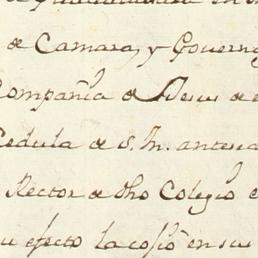 de Camara, y Govern
Compañia de Jesus de
Cedula de S. M. antece
Rector de dho Colegio e
su efecto la copió en su